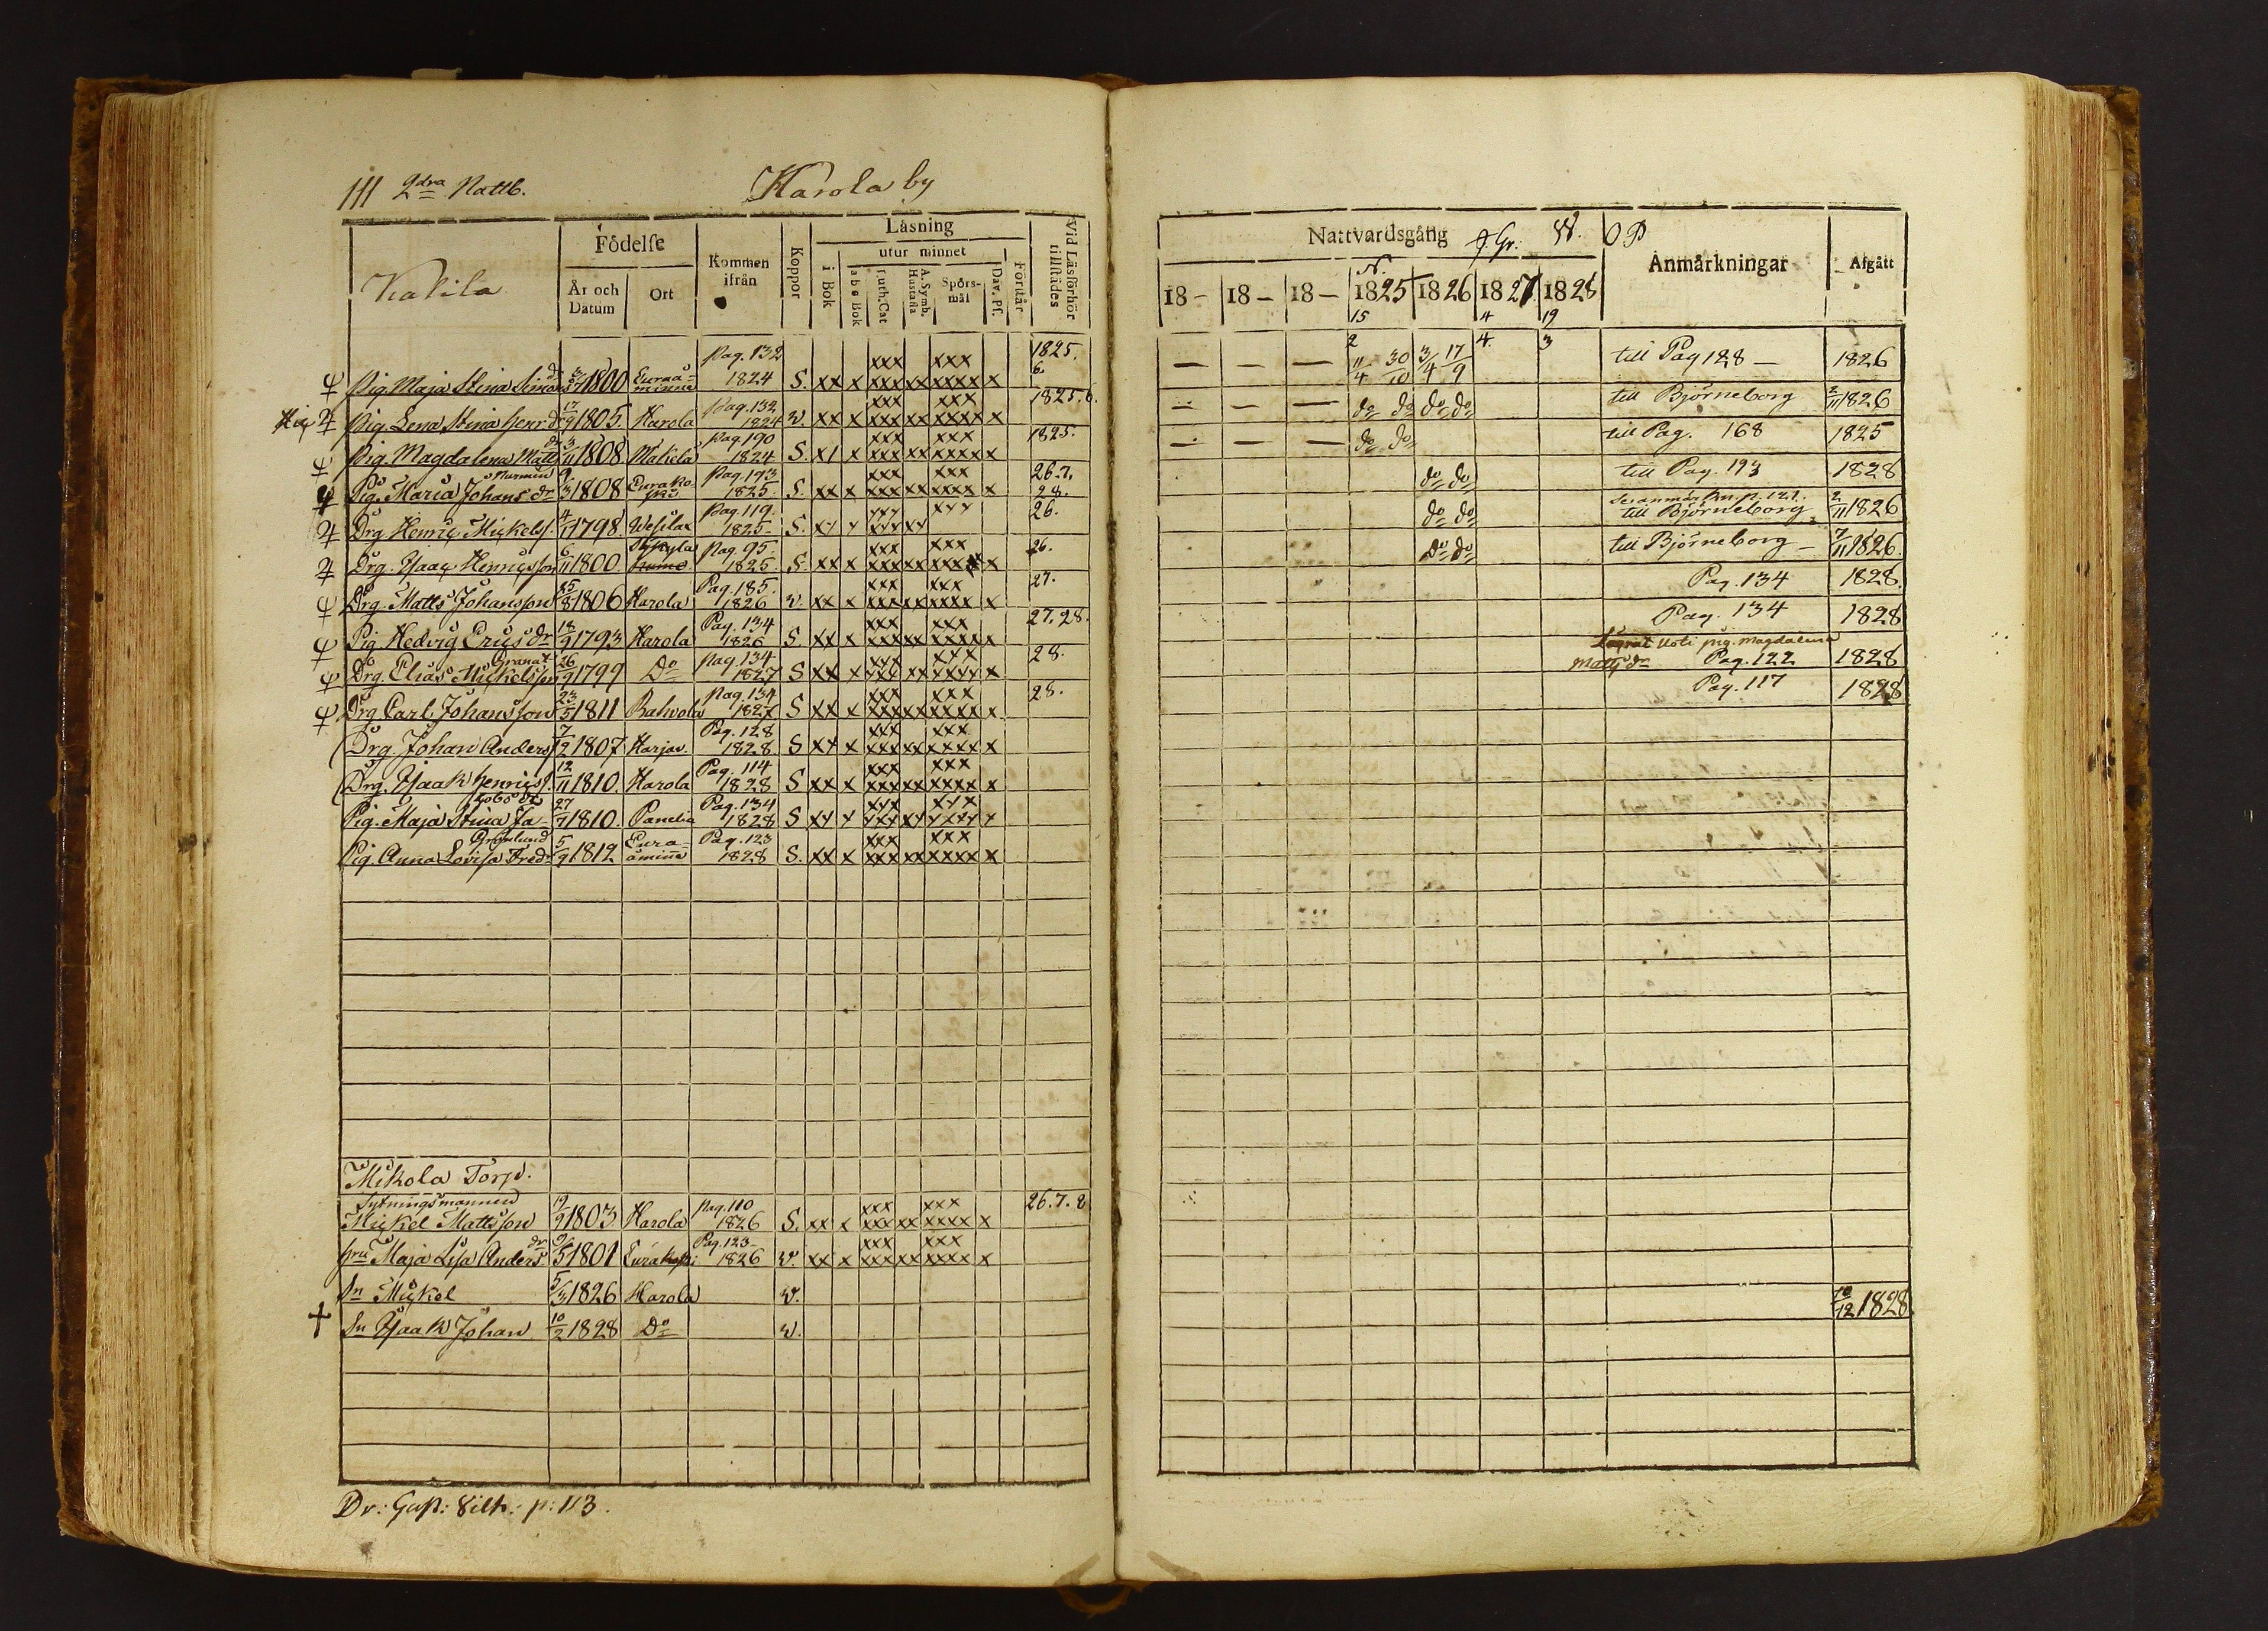 111 2dra Nattb. Harola by
Födelse Kommen ifrån Koppor Läsning Vid Läsförhör tillstädes
utur minnet
Kakila År och Datum Ort i Bok a b c Bok Luth. Cat A. Symb. Hustafla Spörsmål Dav. Ps. Förstår
Nattvardsgång OP Anmärkningar Afgått
18- 18- 18- 1825 1826 1827 1828
15 4 19
2 4. 3
Pig. Maja Stina Simons dr 1800 Euraåminne Pag. 132 1824 S. xx x xxx xxx xx xxx xxxx x 1825. 6. — — — 11/4 30/10 3/4 17/9 till Pag 128 — 1826
Pig. Lena Stina Henr. dr 17/9 1805. Harola Pag. 132 1824 v. xx x xxx xxx xx xxx xxxx x 1825. 6. — — — do do do do till Björneborg 2/11 1826
Pig. Magdalena Matts dr 3/11 1808 Makela Pag. 190 1824 S. x1 x xxx xxx xx xxx xxxx x 1825. — — — do do till Pag. 168 1825
Pig. Maria Johans dr Nurmin 9/3 1808 Eurakoski Pag. 193 1825. S. xx x xxx xxx xx xxx xxxx x 26.7. 28. do do till Pag. 193 1828
Drg Henric Mickels. 4/1 1798. Wesilax Pag. 119. 1825 S. xx x xxx xxx xx xxx 26. do do till Björneborg 2/11 1826
Drg. Isaac Henricsson 6/11 1800 Pag. 95. 1825. S. xx x xxx xxx xx xxx xxxx x 26. do do till Björneborg — 7/11 1826.
Drg. Matts Johansson 25/8 1806 Harola Pag. 185. 1826 v. xx x xxx xxx xx xxx xxxx x 27. Pag. 134 1828.
Pig Hedvig Erics dr 18/9 1793 Harola Pag. 134 1826 S. xx x xxx xxx xx xxx xxxx x 27. 28. Pag. 134 1828
Drg. Elias Mickelsson Granat 26/9 1799 Do Pag. 134 1827 S xx x xxx xxx xx xxx xxxx x 28. pig. Magdalena Matts dr Pag. 122 1828
Drg Carl Johansson 23/5 1811 Rahvola Pag. 134 1827 S xx x xxx xxx xx xxx xxxx x 28. Pag. 117 1828
Drg. Johan Anders 7/2 1807 Harjav. Pag. 128 1828 S xx x xxx xxx xx xxx xxxx x
Drg. Isaak Henrics. 12/11 1810. Harola Pag. 114 1828 S xx x xxx xxx xx xxx xxxx x
Pig. Maja Stina Jacobs dr 27/7 1810. Panelia Pag. 134 1828 S xx x xxx xxx xx xxx xxxx x
Pig. Anna Lovisa Fred. Grönlund 5/9 1812 Euraåminne Pag. 123 1828 S. xx x xxx xxx xx xxx xxxx x
Mikola Torp.
Sytningsmannen
Mickel Mattsson 19/9 1803 Harola Pag. 110 1826 S. xx x xxx xxx xx xxx xxxx x 26. 7. 8
hru Maja Lisa Anders dr 9/5 1801 Pag. 123 1826 v. xx x xxx xxx xx xxx xxxx x
Sn Mickel 5/3 1826 Harola v.
Sn Isaak Johan 10/2 1828 Do v. 10/12 1828
Dr: Gust: Vilh: p: 113.